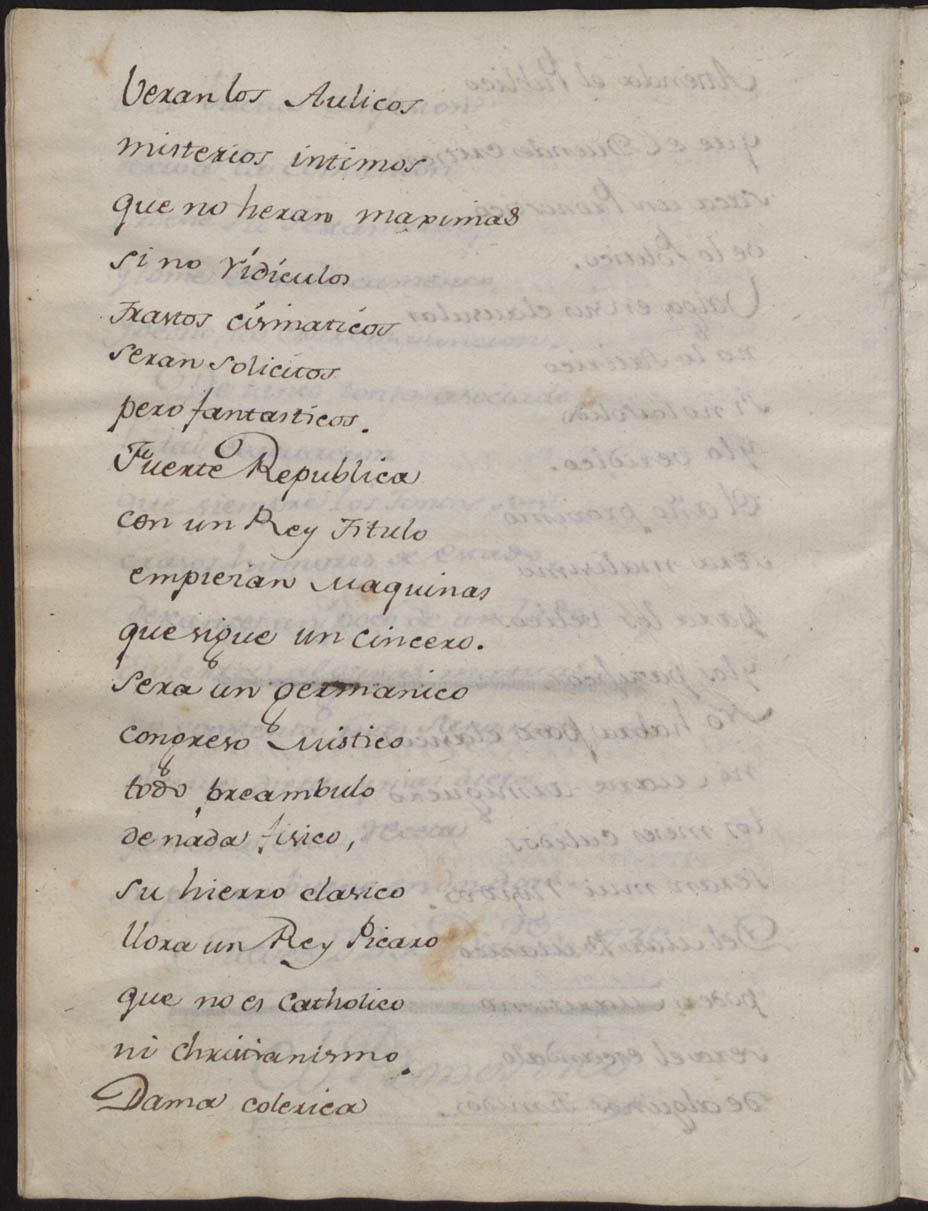 Veran los Aulicos
misterios intimos
que no heran maximas
si no ridiculos
Trastos cismaticos
seran solicitos
pero fantasticos.
Fuerte Republica
con un Rey Titulo
empiezan Maquinas
que sigue un cincero.
sera un germanico
congreso Mistico
todo preambulo
de nada fisico,
su hierro clasico
llora un Rey Picaro
que no es Catholico
ni christianismo.
Dama colerica